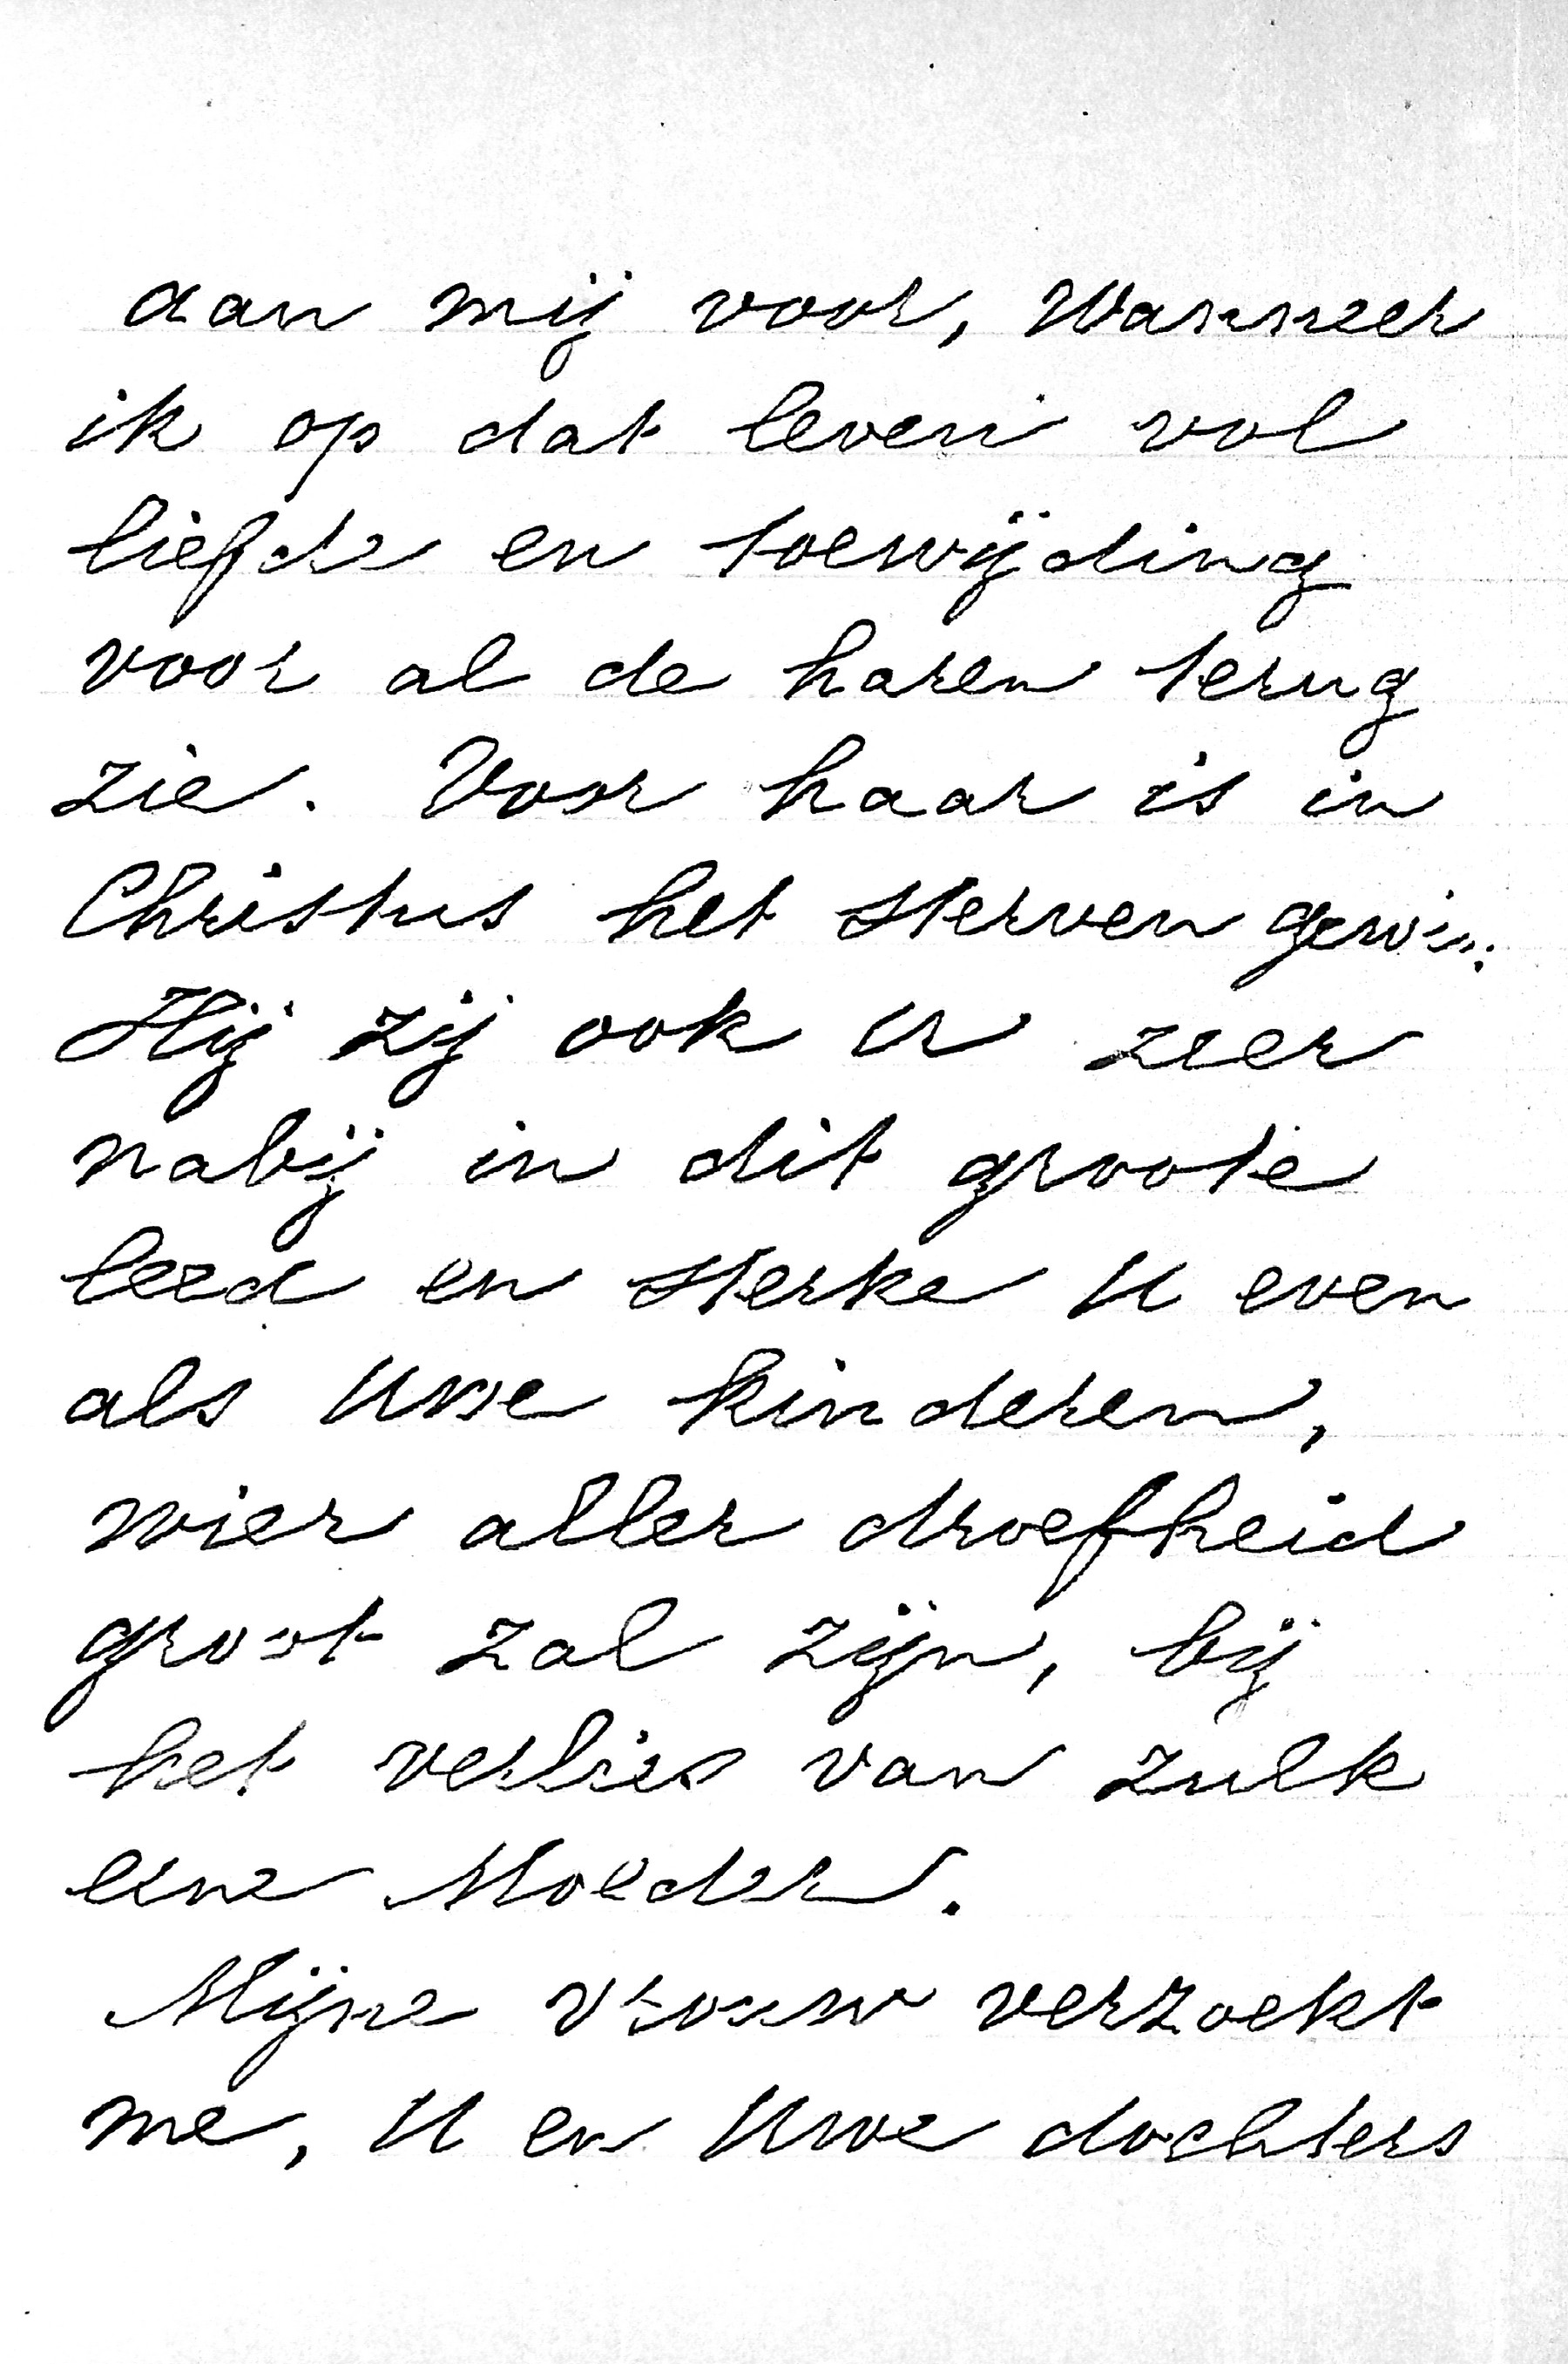 aan mij voor, Wanneer
ik op dat leven vol
liefde en toewijding
voor al de haren terug
zie. Voor haar is in
Christus het sterven gewin.
Hij zij ook U zeer
nabij in dit groote
leed en sterke U even
als Uwe kinderen,
wier aller droefheid
groot zal zijn, bij
het verlies van zulk
eene Moeder.
Mijne vrouw verzoekt
me, U en Uwe dochters